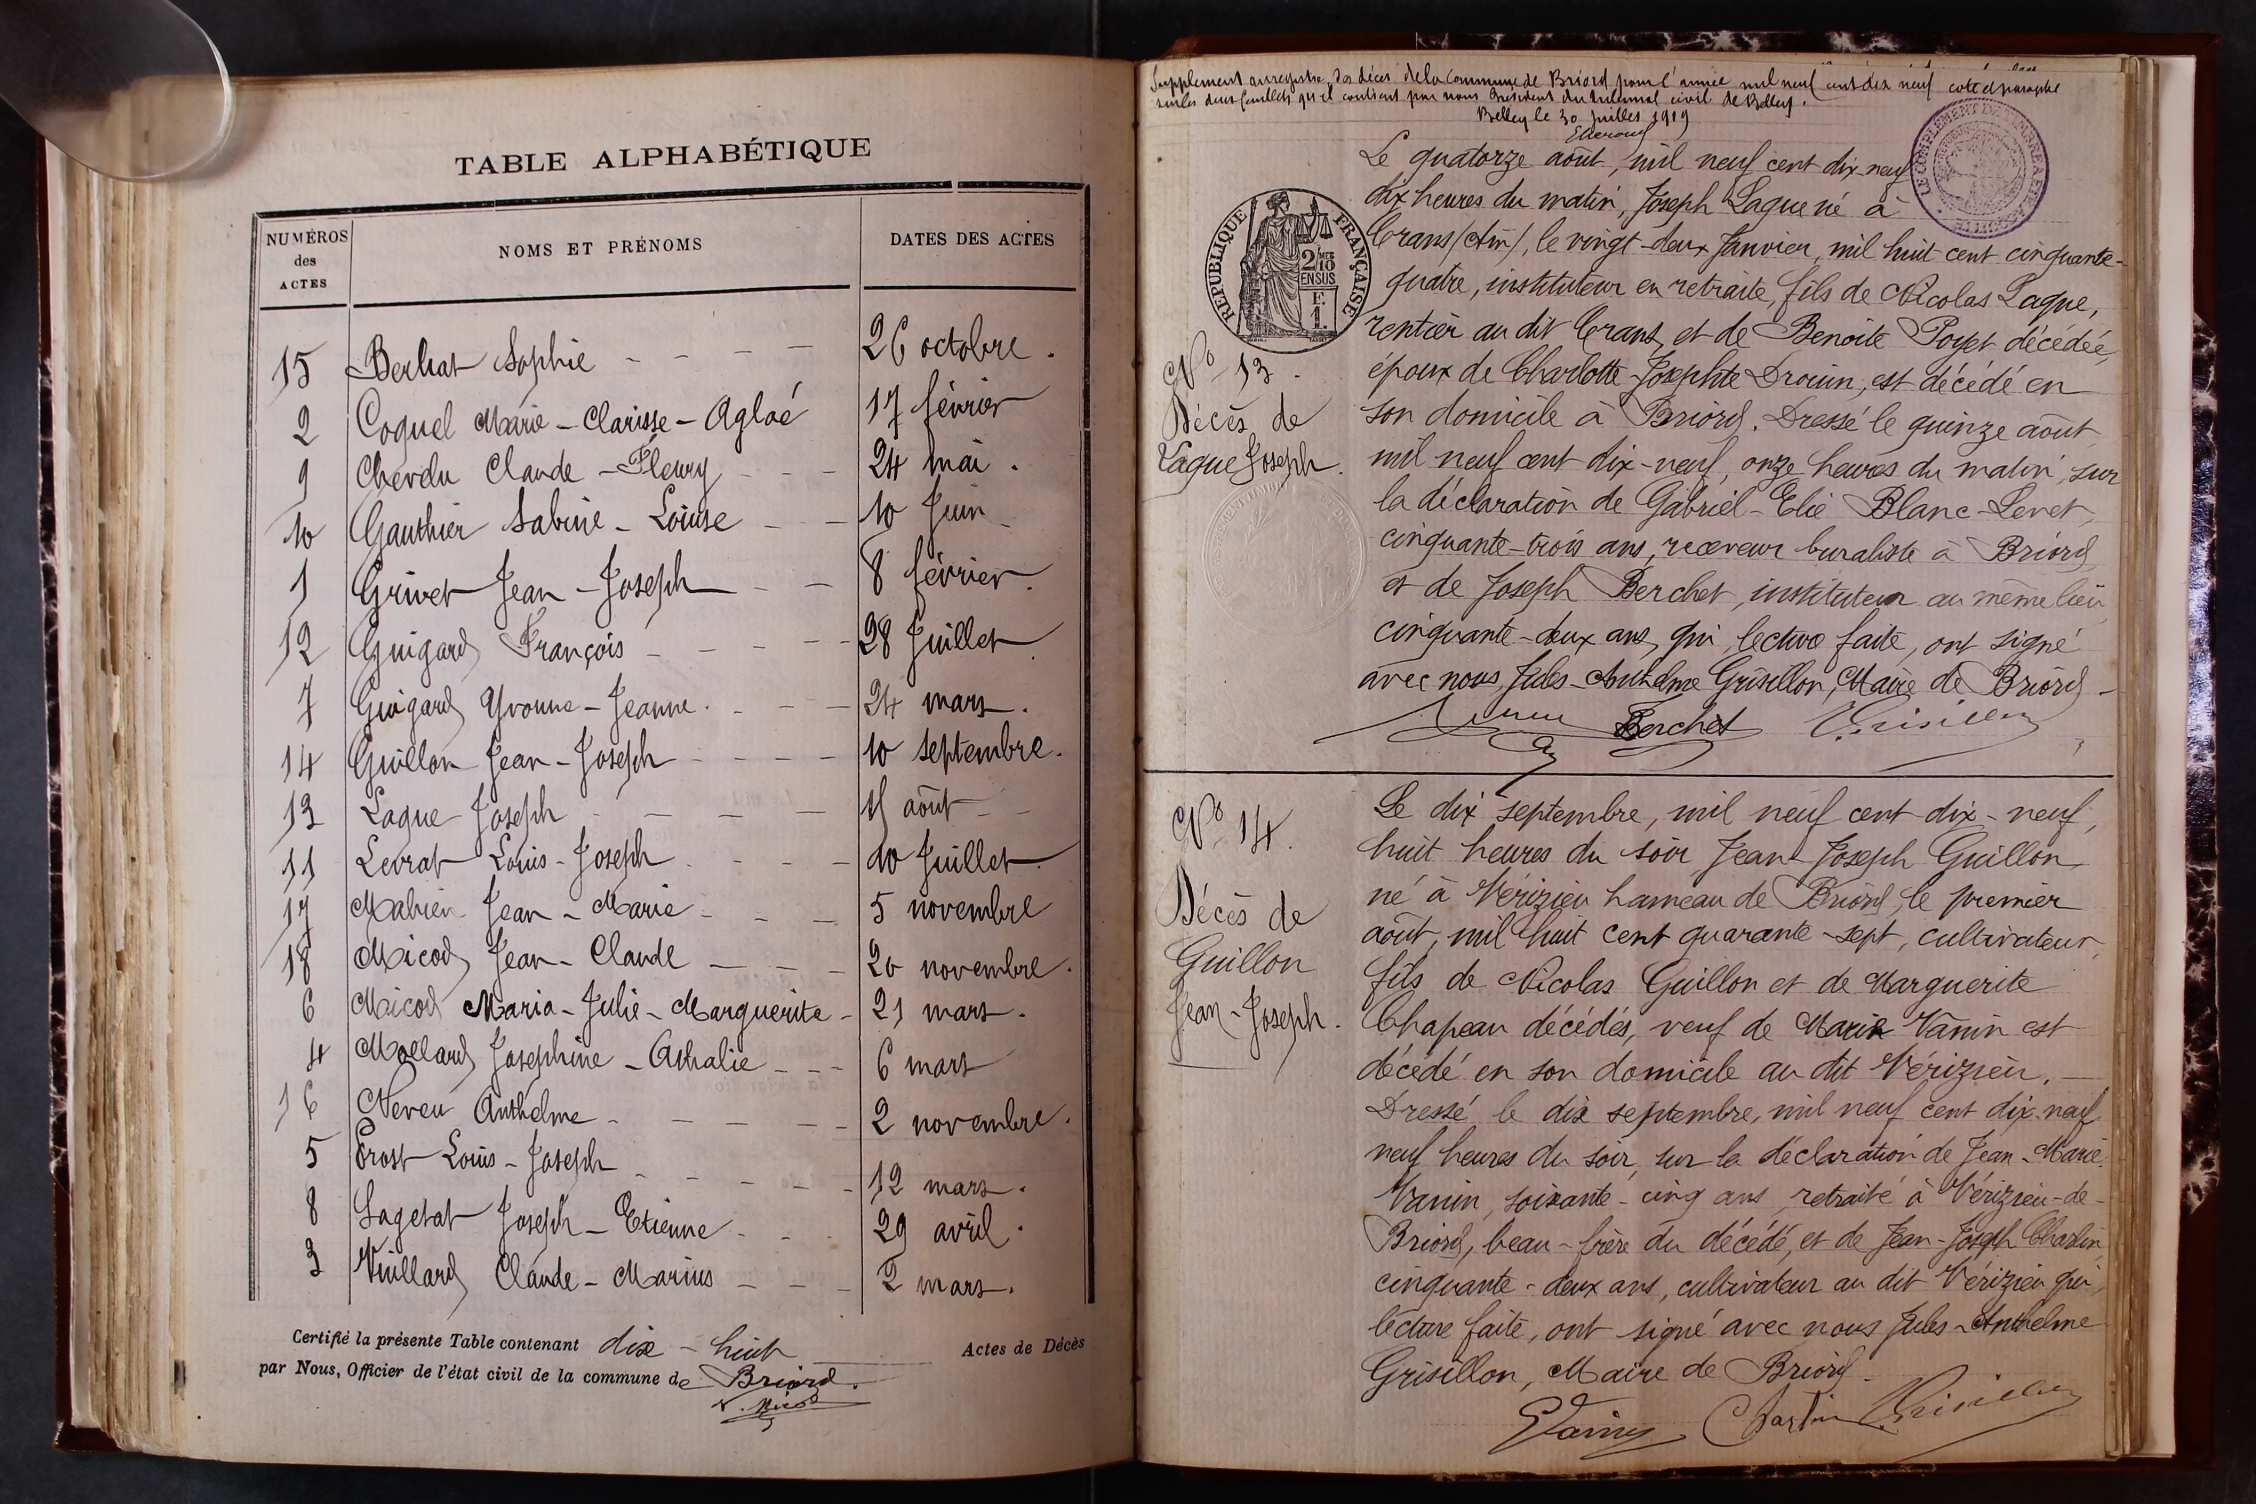 TABLE ALPHABÉTIQUE
NUMÉROS des ACTES NOMS ET PRÉNOMS DATES DES ACTES
15 Berlrat Sophie 26 octobre.
2 Coquel Marie-Clarisse-Aglaé 17 février
9 Cherdu Claude-Fleury 24 mai.
10 Gauthier Sabine-Louise 10 Juin
1 Grivet Jean-Joseph 8 février.
12 Guigard François 28 Juillet
7 Guigard Yvonne-Jeanne. 24 mars.
14 Guillon Jean-Joseph 10 septembre.
13 Laque Joseph 15 août
11 Levrat Louis-Joseph 10 Juillet
17 Mabien Jean-Marie 5 novembre
18 Micod Jean-Claude 20 novembre.
6 Micod Maria-Julie-Marguerite 21 mars.
4 Mollard Josephine-Athalie 6 mars
16 Neveu Anthelme 2 novembre.
5 Prost Louis-Joseph 12 mars.
8 Sagetat Joseph-Etienne 29 avril.
3 Vuillard Claude-Marius 2 mars.
Certifié la présente Table contenant dix-huit Actes de Décès
par Nous, Officier de l'état civil de la commune de Briord.
Supplément au registre des décès de la Commune de Briord pour l'année mil neuf cent dix neuf coté et paraphé
sur les deux feuillets qu'il contient par nous Président du tribunal civil de Belley.
Belley le 30 Juillet 1919
RÉPUBLIQUE FRANÇAISE
2/10
EN SUS
Le quatorze août, mil neuf cent dix-neuf
dix heures du matin, Joseph Laque né à
Crans (Ain), le vingt-deux Janvier, mil huit cent cinquante-
quatre, instituteur en retraite, fils de Nicolas Laque,
rentier au dit Crans, et de Benoite Poyet décédée,
N° 13.
époux de Charlotte Josephte Drouin, est décédé en
Décès de
son domicile à Briord. Dressé le quinze août
Laque Joseph.
mil neuf cent dix-neuf, onze heures du matin, sur
la déclaration de Gabriel-Elie Blanc-Levet,
cinquante-trois ans, receveur buraliste à Briord
et de Joseph Berchet, instituteur au même lieu,
cinquante-deux ans, qui, lecture faite, ont signé
avec nous, Jules-Anthelme Grisillon, Maire de Briord-
Berchet Grisillon
N° 14.
Décès de
Guillon
Jean-Joseph.
Le dix septembre, mil neuf cent dix-neuf,
huit heures du soir, Jean-Joseph Guillon
né à Vérizieu hameau de Briord, le premier
août, mil huit cent quarante-sept, cultivateur,
fils de Nicolas Guillon et de Marguerite
Chapeau décédés, veuf de Marie Vanin est
décédé en son domicile au dit Vérizieu.
Dressé le dix septembre, mil neuf cent dix-neuf
neuf heures du soir, sur la déclaration de Jean-Marie
Vanin, soixante-cinq ans, retraité à Vérizieu-de-
Briord, beau-frère du décédé, et de Jean-Joseph Charlin
cinquante-deux ans, cultivateur au dit Vérizieu qui,
lecture faite, ont signé avec nous Jules-Anthelme
Grisillon, Maire de Briord.
Charlin Grisillon